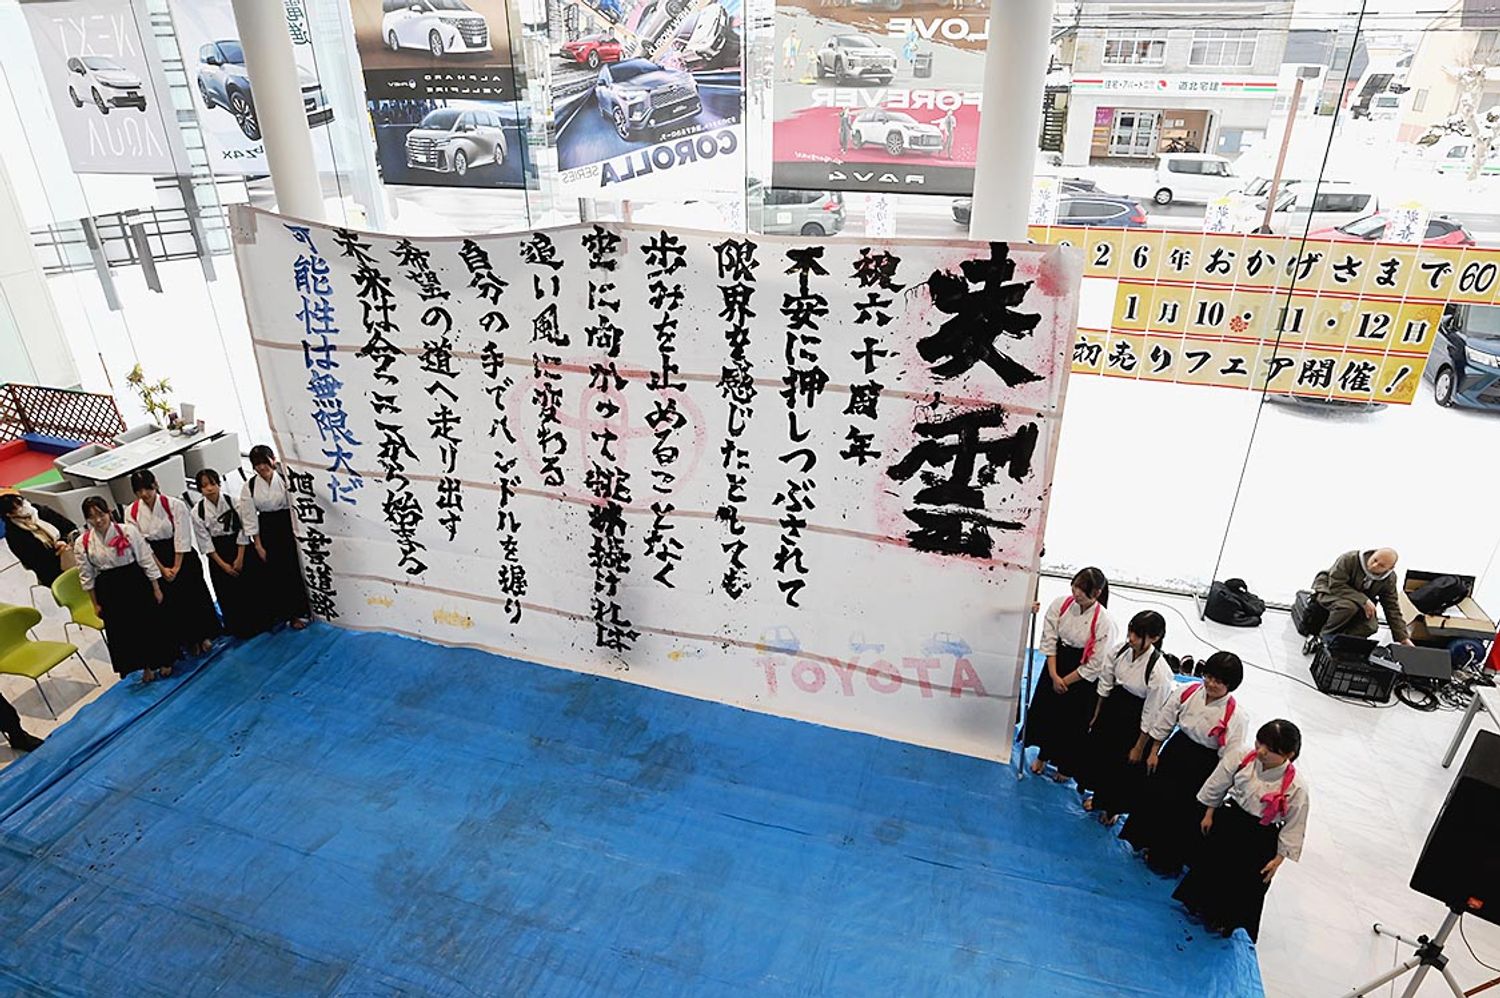 NEXT
AQUA
bZ4X
ALPHARD
VELLFIRE
COROLLA SERIES
LOVE
FOREVER
RAV4
住宅・アパート
道北宅建
26年おかげさまで60
1月10・11・12日
初売りフェア開催!
祝六十周年
不安に押しつぶされて
限界を感じたとしても
歩みを止めることなく
空に向かって挑戦続ければ
追い風に変わる
自分の手でハンドルを握り
希望の道へ走り出す
未来は今ここから始まる
可能性は無限大だ
旭西書道部
TOYOTA